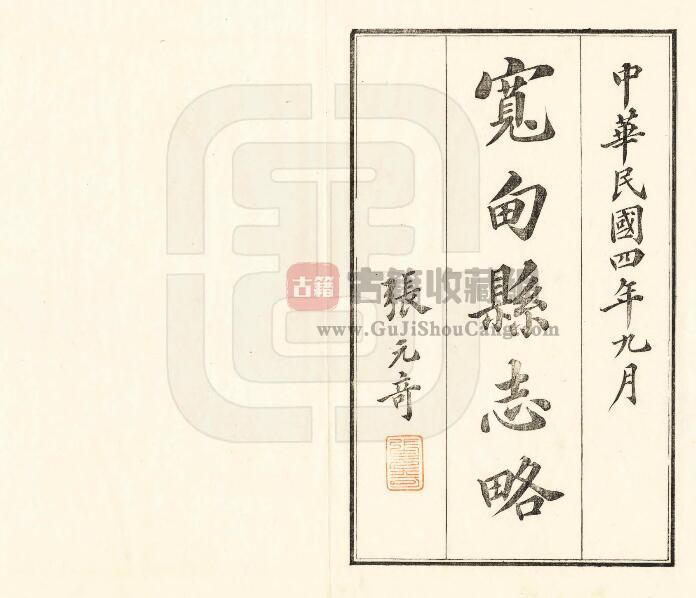 中華民國四年九月
寬甸縣志略
張元奇
古籍
古籍收藏
www.GuJiShouCang.com